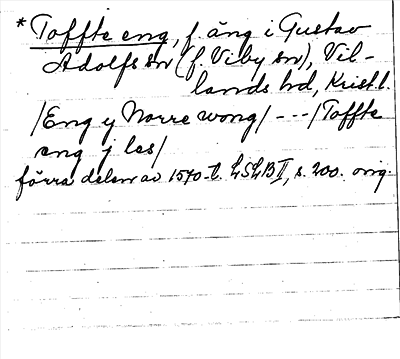 * Toffte eng, f. äng i Gustav
Adolfs sn (f. Viby sn), Vil-
lands hd, Kristl.
/Eng y Norre wong/ - - - /Toffte
eng j les/
förra delen av 1570-t. LSLB II, s. 200. orig.